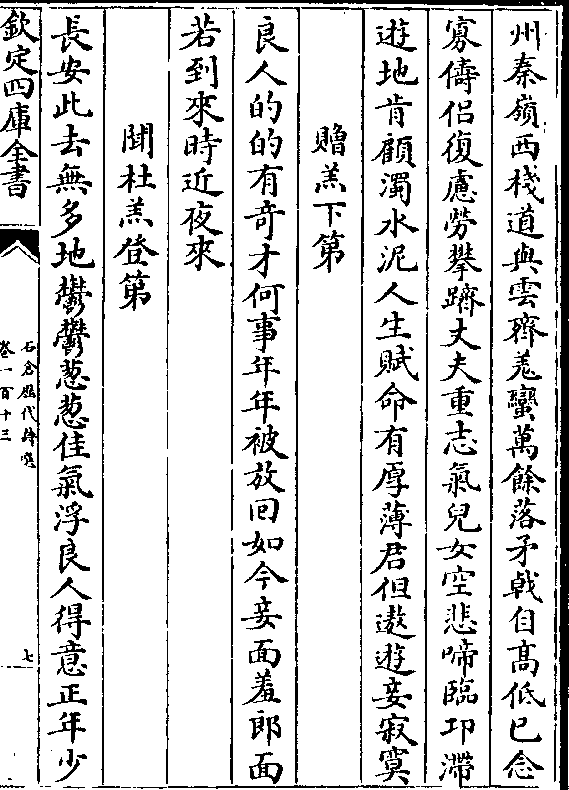 州秦嶺西棧道與雲齊羗蠻萬餘落矛戟自髙低已念
寡儔侣復慮勞攀躋丈夫重志氣兒女空悲啼臨卭滯
逰地肯顧濁水泥人生賦命有厚薄君但遨遊妾寂寞
贈羔下第
良人的的有奇才何事年年被放回如今妾面羞郎面
若到來時近夜來
聞杜羔登第
長安此去無多地鬱鬱葱葱佳氣浮良人得意正年少
欽定四庫全書
石倉歴代詩選
卷一百十三
七